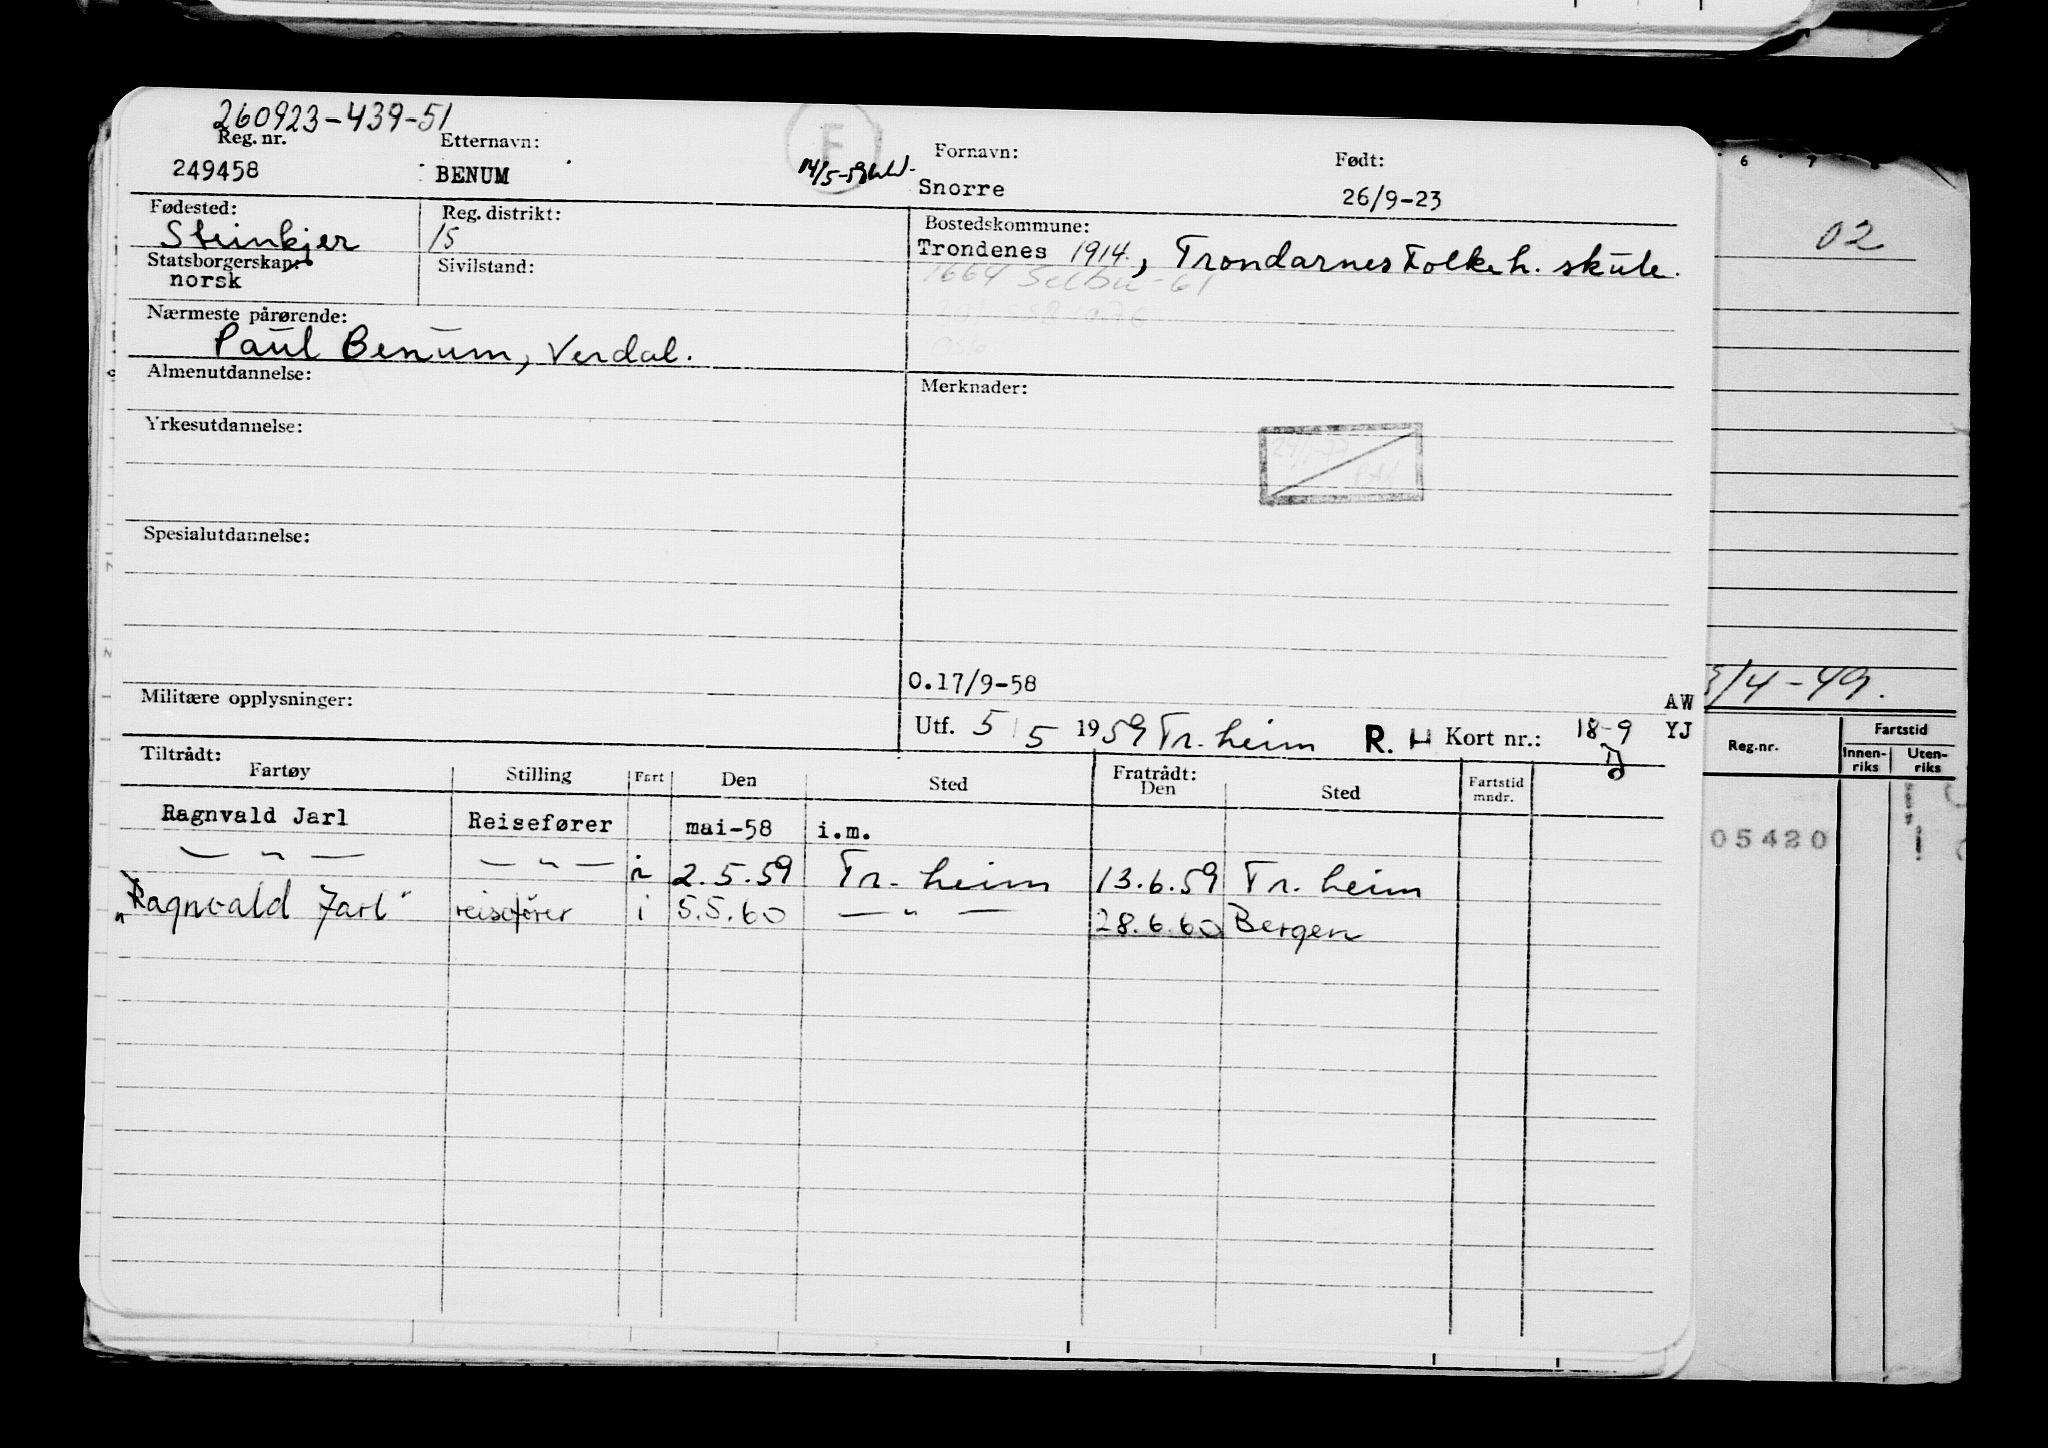 260923-439-51
Reg. nr. Etternavn: Fornavn: Født:
249458 BENUM Snorre 26/9-23
F
Fødested: Reg. distrikt: Bostedskommune:
Steinkjer 15 Trondenes 1914, Trondarnes Folkeh. skule.
Statsborgerskap: Sivilstand: 1664 Selbu - 61
norsk
Nærmeste pårørende:
Paul Benum, Verdal.
Almenutdannelse: Merknader:
Yrkesutdannelse:
Spesialutdannelse:
O.17/9-58
Militære opplysninger: AW
Utf. 5/5 1959 Tr. heim R. H Kort nr.: 18-9 YJ
Tiltrådt: Fratrådt:
Fartøy Stilling Fart Den Sted Den Sted Fartstid mndr.
Ragnvald Jarl Reisefører mai-58 i.m.
— " — — " — i 2.5.59 Tr. heim 13.6.59 Tr. heim
"Ragnvald Jarl" reisefører i 5.5.60 — " — 28.6.60 Bergen
6 9
02
/4-49.
Reg.nr. Fartstid
Innen-riks Uten-riks
05420